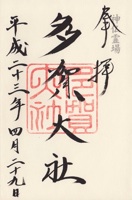 奉拝
神仏霊場
多賀大社
平成二十三年四月二十九日